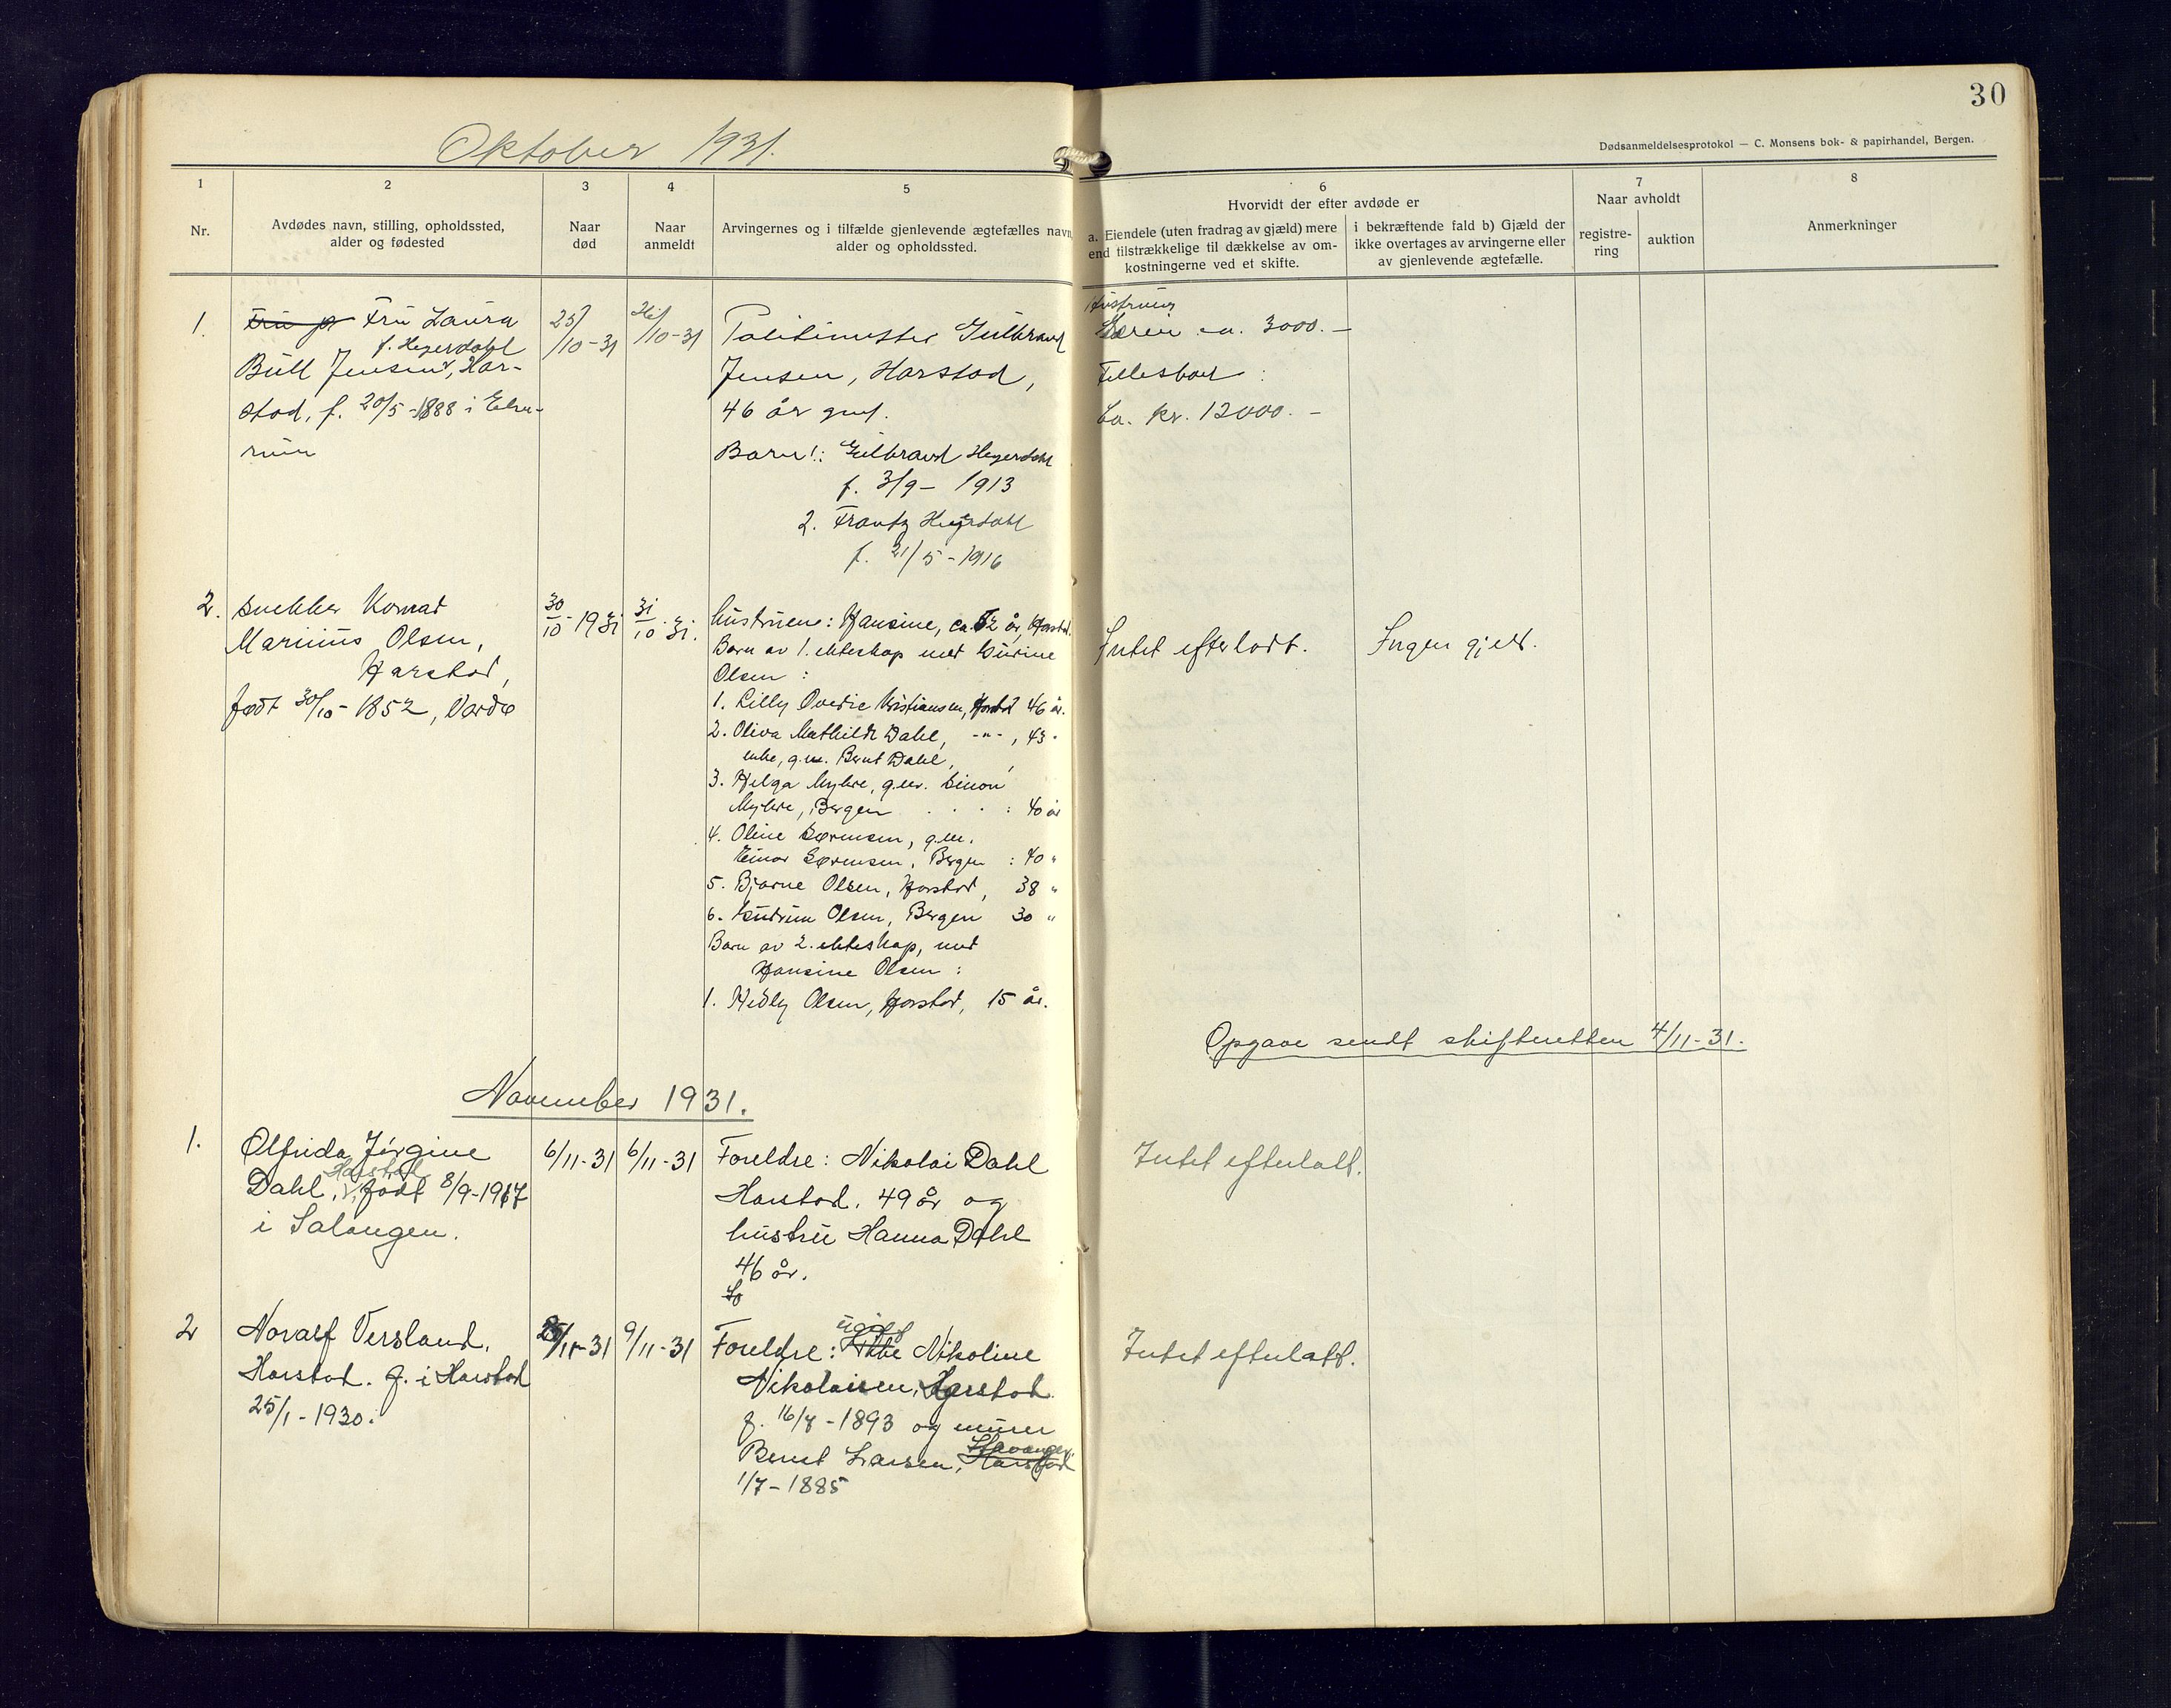 30
Oktober 1931.
Dødsanmeldelsesprotokol — C. Monsens bok- & papirhandel, Bergen.
1
Nr.
2
Avdødes navn, stilling, opholdssted,
alder og fødested
3
Naar
død
4
Naar
anmeldt
5
Arvingernes og i tilfælde gjenlevende ægtefælles navn,
alder og opholdssted.
6
Hvorvidt der efter avdøde er
a. Eiendele (uten fradrag av gjæld) mere
end tilstrækkelige til dækkelse av om-
kostningerne ved et skifte.
i bekræftende fald b) Gjæld der
ikke overtages av arvingerne eller
av gjenlevende ægtefælle.
7
Naar avholdt
registre-
ring
auktion
8
Anmerkninger
1.
Fru Laura
f. Heyerdahl
Bull Jensen, Har-
stad, f. 20/5-1888 i Elve-
rum
25/
/10-31
/10-31
Politimester Gulbrand
Jensen, Harstad,
46 år gml.
Barn 1: Gulbrand Heyerdahl
f. 3/9- 1913
2. Frantz Heyerdahl
f. 21/5-1916
ca. 3000.-
Fellesboet:
Ca. kr. 12000.-
2.
Snekker Konrad
Marinius Olsen,
Harstad,
født 30/10-1852, Vardø
30/10-1931
31/10-31.
hustruene: Hansine, ca. 52 år, Harstad.
Barn av 1. ekteskap med
Olsen:
1. Lilly Ovedie Kristiansen, Harstad 46 år.
2. Oliva Mathilde Dahl, -"-, 43 "
enke, g.m. Bernt Dahl,
3. Helga Myhre, g.m. Simon
Myhre, Bergen : 40 år
4. Oline Sørensen, g.m.
Einar Sørensen, Bergen : 40 "
5. Bjarne Olsen, Harstad, 38 "
6. Gudrun Olsen, Bergen 30 "
Barn av 2. ekteskap, med
Hansine Olsen:
1. Hedly Olsen, Harstad, 15 år.
Intet efterladt.
Ingen gjeld.
Opgave sendt skifteretten 4/11-31.
November 1931.
1.
Olfrida Jørgine
Harstad
Dahl, født 8/9-1917
i Salangen.
6/11-31
6/11-31
Foreldre: Nikolai Dahl
Harstad. 49 år og
hustru Hanna Dahl
46 år.
Intet efterlatt.
2
Noralf Versland.
Harstad. f. i Harstad
25/1-1930.
/11-31
9/11-31
Foreldre: ugift Nikoline
Nikolaisen, Harstad.
f. 16/8-1893 og murer
Bernt Larsen, Stavanger
Harstad
1/7-1885
Intet efterlatt.